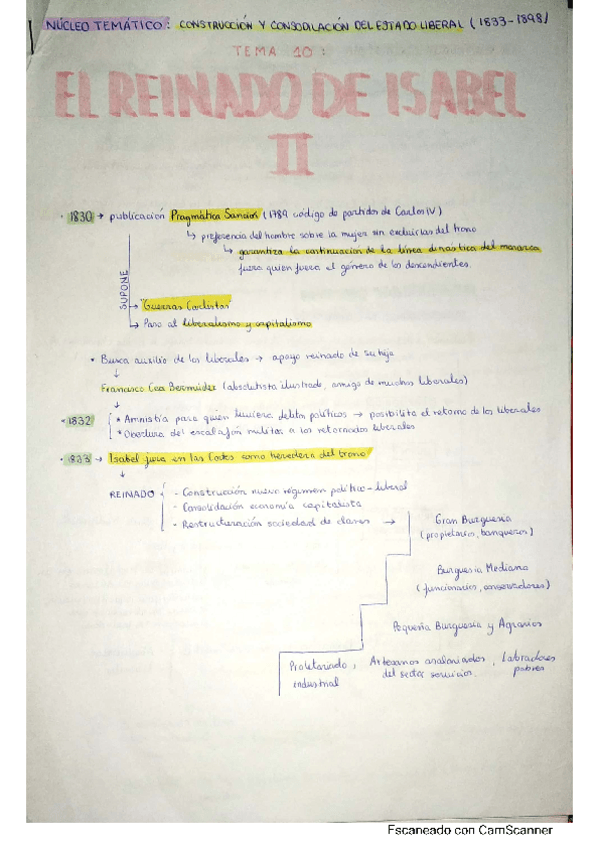 NÚCLEO TEMÁTICO: CONSTRUCCIÓN Y CONSODILACIÓN DEL ESTADO LIBERAL (1833-1898)
TEMA 10:
EL REINADO DE ISABEL
II
· 1830 → publicación Pragmática Sanción (1789 código de partidos de Carlos IV)
↳ preferencia del hombre sobre la mujer sin excluirlas del trono
↳ garantiza la continuación de la línea dinástica del monarca
fuera quien fuera el género de los descendientes.
SUPONE
→ "Guerras Carlistas"
↳ Paso al liberalismo y capitalismo
• Busca auxilio de los liberales → apoyo reinado de su hija
↓
Francisco Cea Bermúdez (absolutista ilustrado, amigo de muchos liberales)
↓
· 1832 * Amnistía para quien tuviera delitos políticos → posibilita el retorno de los liberales
* Obertura del escalafón militar a los retornados liberales
· 1833 → Isabel jura en las Cortes como heredera del trono
↓
REINADO - Construcción nuevo régimen político-liberal
- Consolidación economía capitalista
- Restructuración sociedad de clases → Gran Burguesía
(propietarios, banqueros)
Burguesía Mediana
(funcionarios, conservadores)
Pequeña Burguesía y Agrarios
Proletariado, Artesanos asalariados, Labradores
industrial del sector servicios. pobres
Escaneado con CamScanner